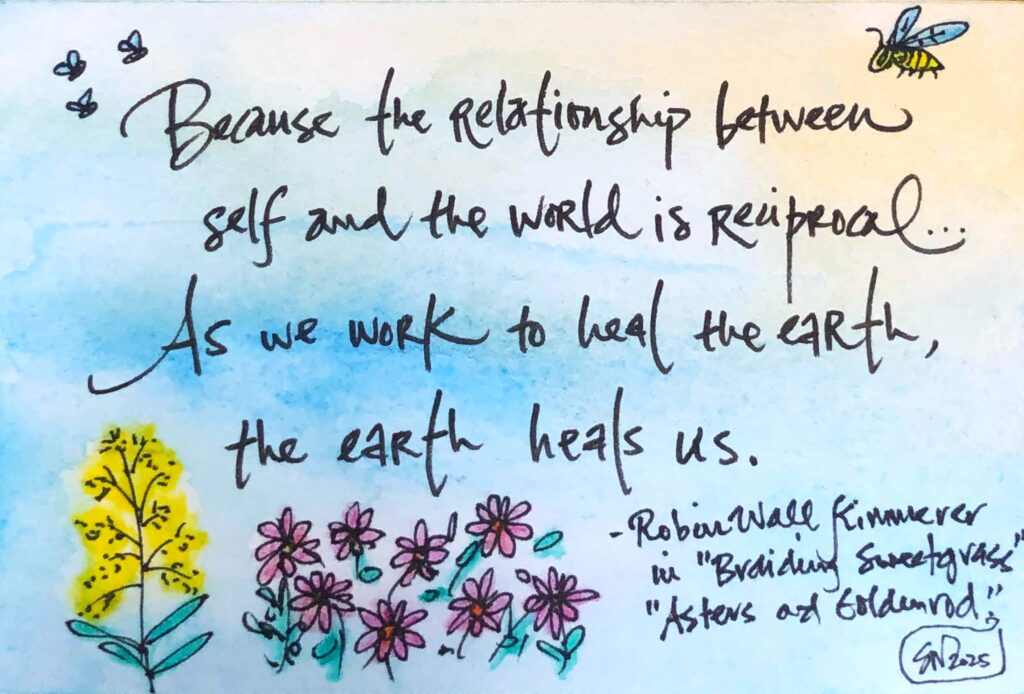 Because the relationship between
self and the world is reciprocal...
As we work to heal the earth,
the earth heals us.
- Robin Wall Kimmerer
in "Braiding Sweetgrass"
"Asters and Goldenrod"
2025